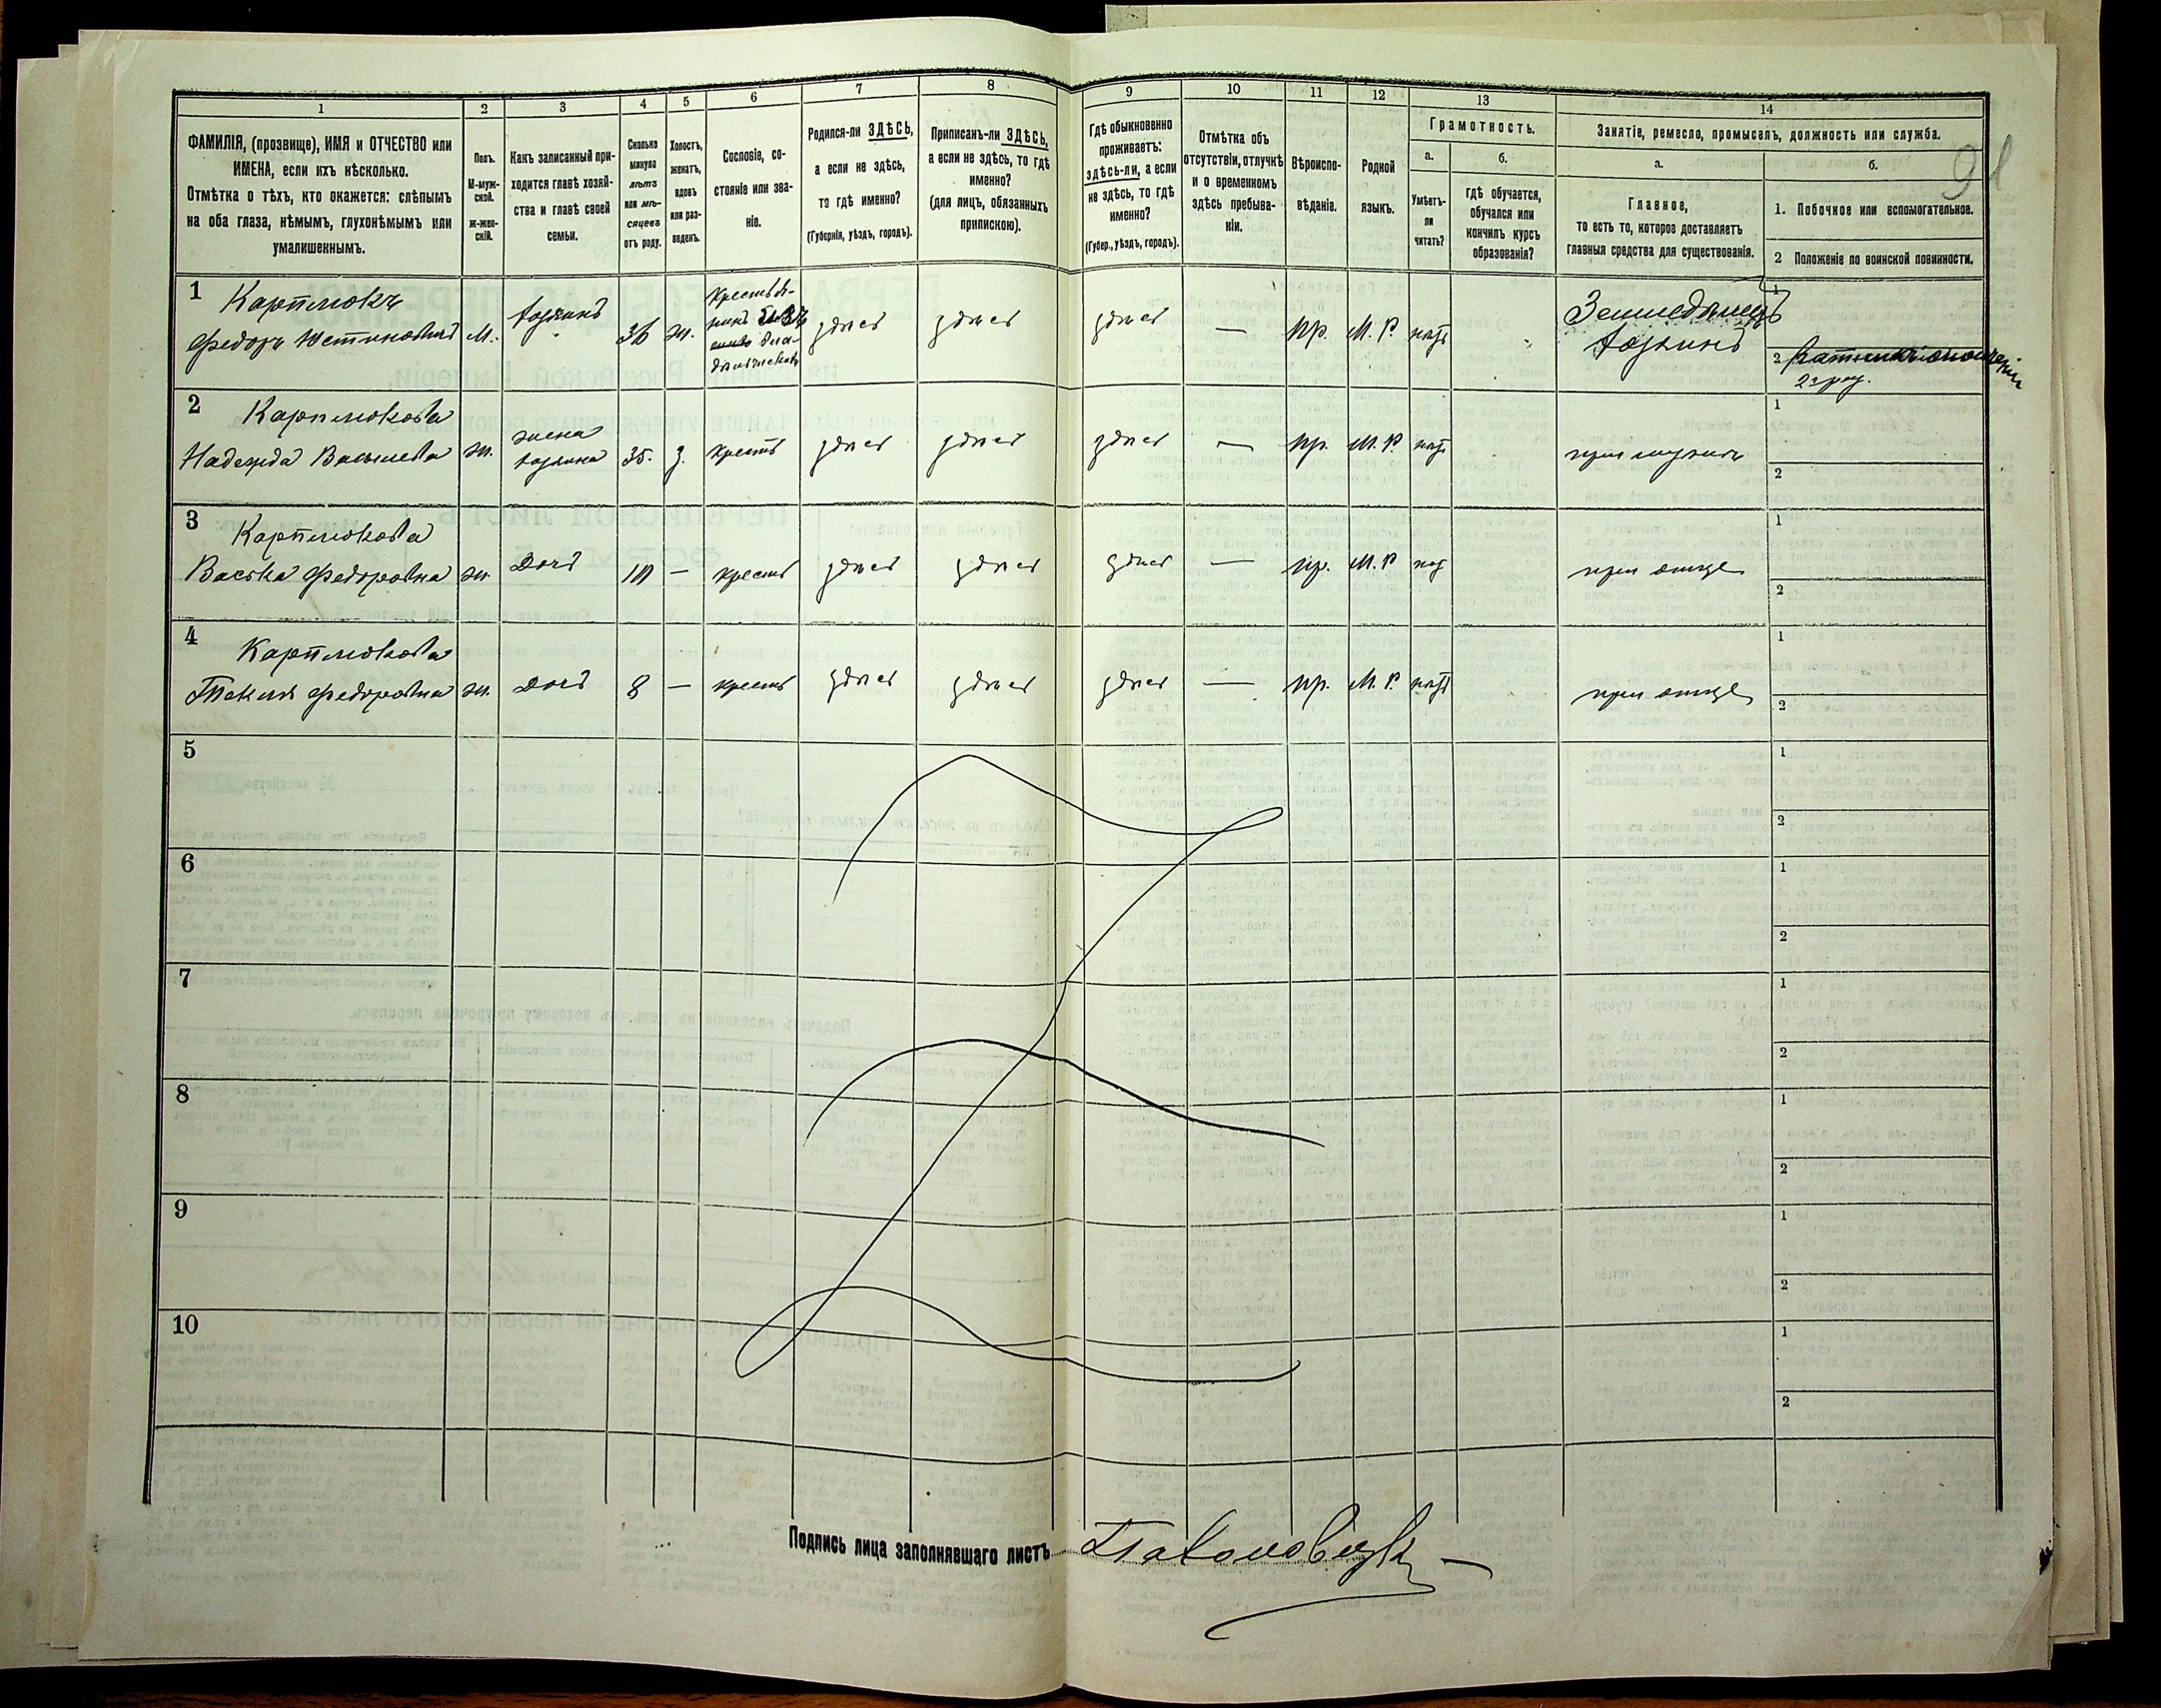 91
1 2 3 4 5 6 7 8 9 10 11 12 13 14
ФАМИЛІЯ, (прозвище), ИМЯ и ОТЧЕСТВО или
ИМЕНА, если ихъ нѣсколько.
Отмѣтка о тѣхъ, кто окажется: слѣпымъ
на оба глаза, нѣмымъ, глухонѣмымъ или
умалишеннымъ.
Полъ.
М-муж-
ской.
ж-жен-
скій.
Какъ записанный при-
ходится главѣ хозяй-
ства и главѣ своей
семьи.
Сколько
минуло
лѣтъ
или мѣ-
сяцевъ
отъ роду.
Холостъ,
женатъ,
вдовъ
или раз-
веденъ.
Сословіе, со-
стояніе или зва-
ніе.
Родился-ли ЗДѢСЬ,
а если не здѣсь,
то гдѣ именно?
(Губернія, уѣздъ, городъ).
Приписанъ-ли ЗДѢСЬ,
а если не здѣсь, то гдѣ
именно?
(для лицъ, обязанныхъ
припискою).
Гдѣ обыкновенно
проживаетъ:
здѣсь-ли, а если
не здѣсь, то гдѣ
именно?
(Губер., уѣздъ, городъ).
Отмѣтка объ
отсутствіи, отлучкѣ
и о временномъ
здѣсь пребыва-
ніи.
Вѣроиспо-
вѣданіе.
Родной
языкъ.
Грамотность.
а.
Умѣетъ-
ли
читать?
б.
Гдѣ обучается,
обучался или
кончилъ курсъ
образованія?
Занятіе, ремесло, промыселъ, должность или служба.
а.
Главное,
то есть то, которое доставляетъ
главныя средства для существованія.
б.
1. Побочное или вспомогательное.
2 Положеніе по воинской повинности.
1 Карплюкъ
Федоръ Устиновичъ М. хозяинъ 36 ж.
Крестья-
нинъ
здѣсь здѣсь здѣсь — пр. М. Р. нѣтъ
Земледѣлецъ
хозяинъ
1
2
2 разр.
2 Карплюкова
Надежда Васильева ж. жена
хозяина 35. з. крест здѣсь здѣсь здѣсь — пр. М. Р. нѣтъ при мужѣ
1
2
3 Карплюкова
Васька Федоровна ж. дочь 10 — крест здѣсь здѣсь здѣсь — пр. М. Р при отце
1
2
4 Карплюкова
Текля Федоровна ж. дочь 8 — крест здѣсь здѣсь здѣсь — пр. М. Р. нѣтъ при отце
1
2
5
1
2
6
1
2
7
1
2
8
1
2
9
1
2
10
1
2
Подпись лица заполнявшаго листъ